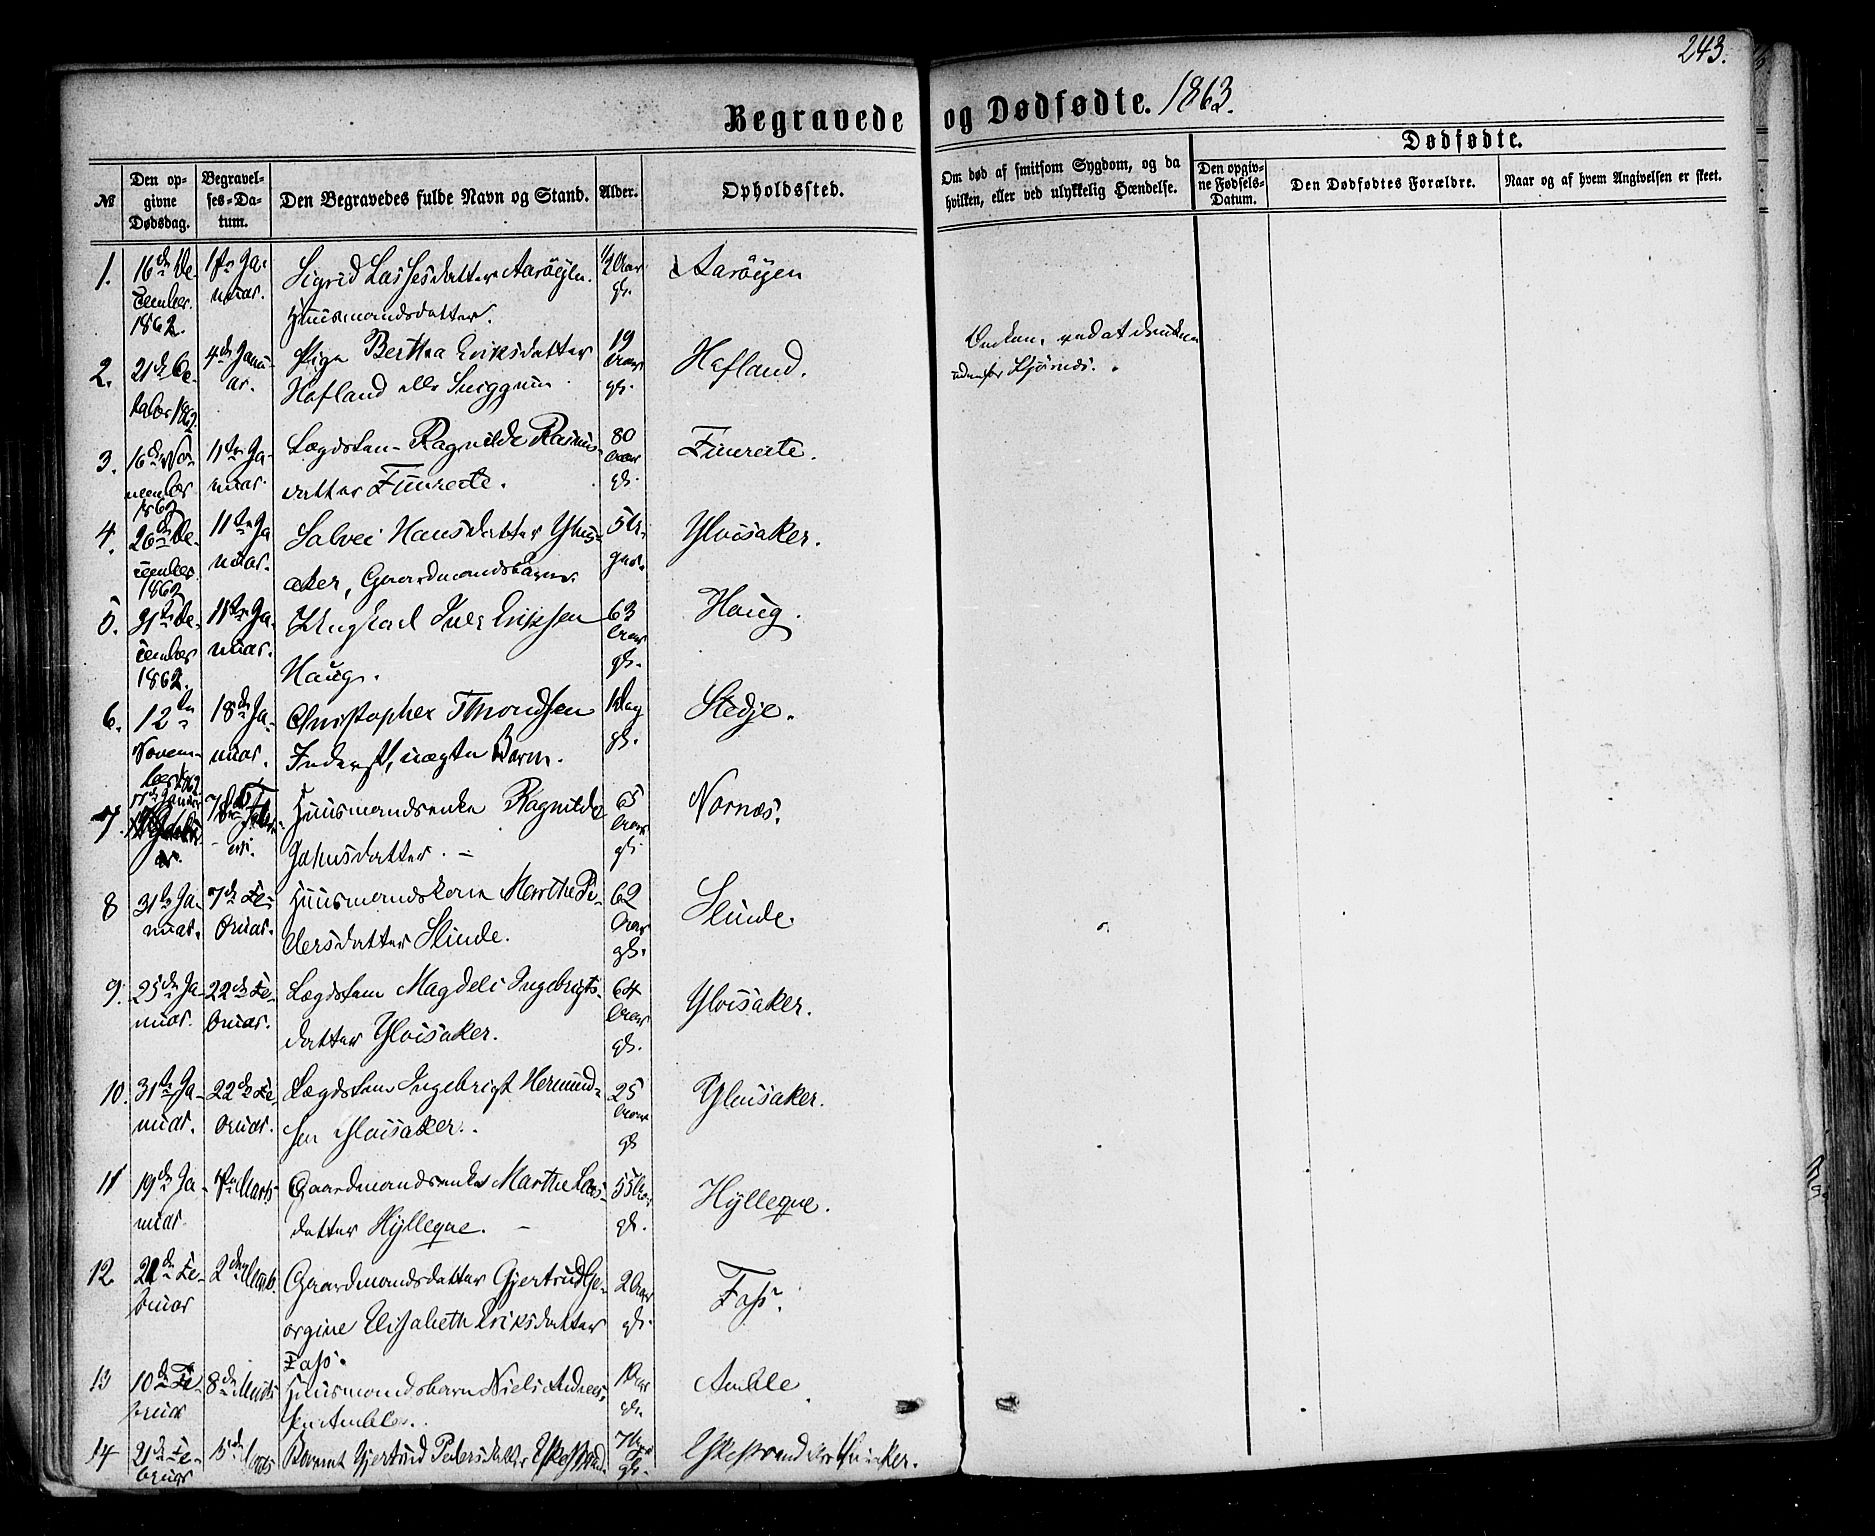 243.
Begravede og Dødfødte. 1863.
№
Den opgivne Dødsdag.
Begravelses-Datum.
Den Begravedes fulde Navn og Stand.
Alder.
Opholdssted.
Om død af smitsom Sygdom, og da hvilken, eller ved ulykkelig Hændelse.
Dødfødte.
Den opgivne Fødsels-Datum.
Den Dødfødtes Forældre.
Naar og af hvem Angivelsen er skeet.
1. 16de December 1862. 1ste Januar. Sigrid Lassesdatter Aarøyen. Huusmandsdatter. ½ Aar gl. Aarøyen
2. 21de 1862. 4de Januar. Pige Berthe Eriksdatter Hafland 19 Aar gl. Hafland.
3. 16de November 1862 11te Januar. Lægdslem Ragnilde Rasmusdatter Fimreite. 80 Aar gl. Fimreite.
4. 26de December 1862 11te Januar. Salvei Hansdatter Ylvisaker, Gaardmandsbarn. 5 Uger. Ylvisaker.
5. 31te December 1862. 11te Januar. Iver Eriksen Haug. 63 Aar gl. Haug.
6. 12te November 1862 18de Januar. Christopher Throndsen Inderst, uægte Barn. 1 Dag gl. Stedje.
7. 17de Januar 7de Februar. Huusmandsenke Ragnilde Jahnsdatter. 65 Aar gl. Nornæs.
8 31te Januar. 7de Februar. Huusmandskone Marthe Pedersdatter Slinde. 62 Aar gl. Slinde.
9. 25de Januar. 22de Februar. Lægdslem Magdeli Ingebrigtsdatter Ylvisaker. 64 Aar gl. Ylvisaker.
10. 31te Januar. 22de Februar. Lægdslem Ingebrigt Hermundsen Ylvisaker. 25 Aar gl Ylvisaker.
11 19de Januar 1ste Marts Gaardmandsenke Marthe Larsdatter Hylleqve. 55 Aar gl. Hylleqve.
12. Februar 2den Marts. Gaardmandsdatter Gjertrud Georgine Elisabeth Eriksdatter Foss. 2 Aar gl. Foss.
13 10de Februar 8de Marts Huusmandsbarn Niels Andreas Amble. 1 Aar gl. Amble
14 21de Februar 15de Marts Barnet Gjertrud Pedersdatter Eskestrand gl. Eskestrand